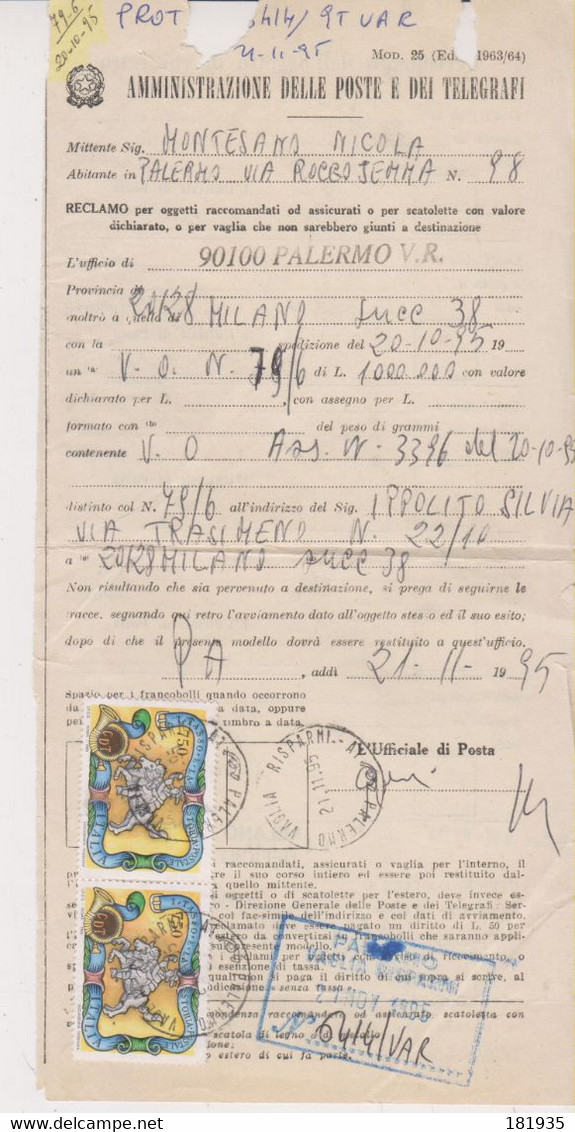 79-6
20-10-95
PROT 6414/9T VAR
21-11-95
MOD. 25 (Ed. 1963/64)
AMMINISTRAZIONE DELLE POSTE E DEI TELEGRAFI
Mittente Sig. MONTESANO NICOLA
Abitante in PALERMO VIA ROCCO JEMMA N. 98
RECLAMO per oggetti raccomandati od assicurati o per scatolette con valore
dichiarato, o per vaglia che non sarebbero giunti a destinazione
L'ufficio di 90100 PALERMO V.R.
Provincia di
inoltrò a quello di 20128 MILANO SUCC 38
con la spedizione del 20-10-95 19
un V. O. N. 79/6 di L. 1000.000 con valore
dichiarato per L. , con assegno per L.
formato con del peso di grammi
contenente V. O Ass. N. 3396 del 20-10-95
distinto col N. 79/6 all'indirizzo del Sig. IPPOLITO SILVIA
VIA TRASIMENO N. 22/10
a 20128 MILANO SUCC 38
Non risultando che sia pervenuto a destinazione, si prega di seguirne le
tracce, segnando qui retro l'avviamento dato all'oggetto stesso ed il suo esito;
dopo di che il presente modello dovrà essere restituito a quest'ufficio.
PA , addì 21-11-1995
Spazio per i francobolli quando occorrono
a data, oppure
timbro a data.
L'Ufficiale di Posta
VAGLIA RISPARMI PALERMO
21.11.95
750
I TASSO E LA STORIA POSTALE
ITALIA
raccomandati, assicurati o vaglia per l'interno, il
re il suo corso intiero ed essere poi restituito dal-
a quello mittente.
oggetti o di scatolette per l'estero, deve invece es-
- Direzione Generale delle Poste e dei Telegrafi: Ser-
col fac-simile dell'indirizzo e coi dati di avviamento.
reclamo deve essere pagato un diritto di L. 50 per
destero da convertirsi in francobolli che saranno appli-
sul presente modello.
i reclami per oggetti con avviso di ricevimento, o
esenzione di tassa.
quali non si paga il diritto di cui sopra si scrive, al
senza tassa
22 NOV 1995
N° 6414/VAR
corrispondenza raccomandata od assicurata, scatoletta con
scatola di legno o di metallo
o estero di cui fa parte.
181935